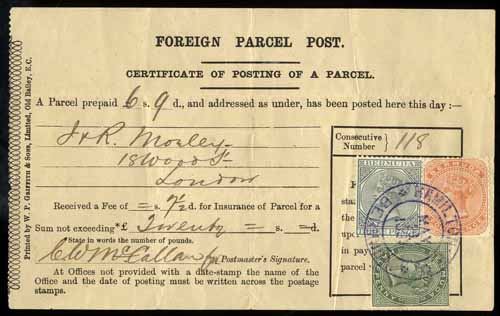 FOREIGN PARCEL POST.
CERTIFICATE OF POSTING OF A PARCEL.
A Parcel prepaid 6 s. 9 d., and addressed as under, has been posted here this day :—
J & R. Morley
18 Wood St
London
Consecutive Number } 118
Received a Fee of = s. 7½ d. for Insurance of Parcel for a
Sum not exceeding *£ Twenty = s. = d.
State in words the number of pounds.
Postmaster's Signature.
At Offices not provided with a date-stamp the name of the
Office and the date of posting must be written across the postage
stamps.
the
upon
in pay
parcel
BERMUDA
HAMILTON
Printed by W. P. Griffith & Sons, Limited, Old Bailey, E.C.